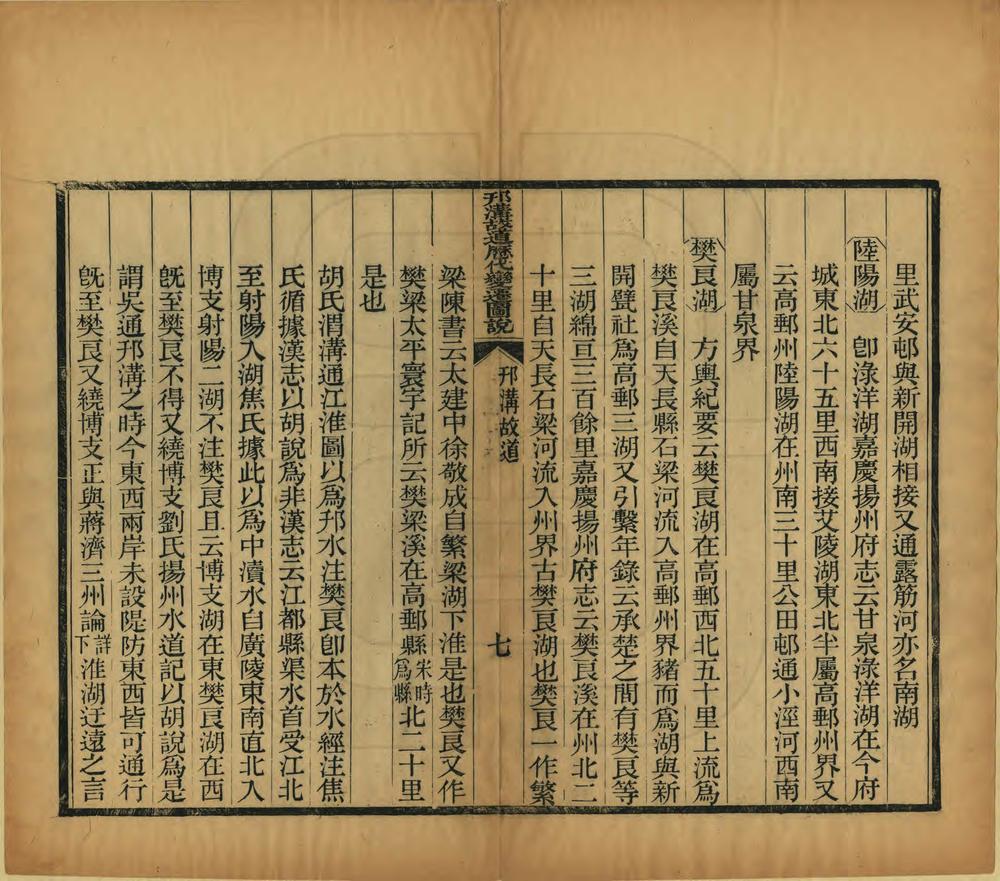 里武安邨與新開湖相接又通露筋河亦名南湖
陸陽湖　卽淥洋湖嘉慶揚州府志云甘泉淥洋湖在今府
城東北六十五里西南接艾陵湖東北半屬高郵州界又
云高郵州陸陽湖在州南三十里公田邨通小涇河西南
屬甘泉界
樊良湖　方輿紀要云樊良湖在高郵西北五十里上流爲
樊良溪自天長縣石梁河流入高郵州界豬而爲湖與新
開甓社爲高郵三湖又引繫年錄云承楚之閒有樊良等
三湖綿亘三百餘里嘉慶揚州府志云樊良溪在州北二
十里自天長石梁河流入州界古樊良湖也樊良一作繁
邗溝故道歷代變遷圖說
邗溝故道
七
梁陳書云太建中徐敬成自繁梁湖下淮是也樊良又作
樊梁太平寰宇記所云樊梁溪在高郵縣宋時爲縣北二十里
是也
胡氏渭溝通江淮圖以爲邗水注樊良卽本於水經注焦
氏循據漢志以胡說爲非漢志云江都縣渠水首受江北
至射陽入湖焦氏據此以爲中瀆水自廣陵東南直北入
博支射陽二湖不注樊良且云博支湖在東樊良湖在西
旣至樊良不得又繞博支劉氏揚州水道記以胡說爲是
謂吳通邗溝之時今東西兩岸未設隄防東西皆可通行
旣至樊良又繞博支正與蔣濟三州論詳下淮湖迂遠之言